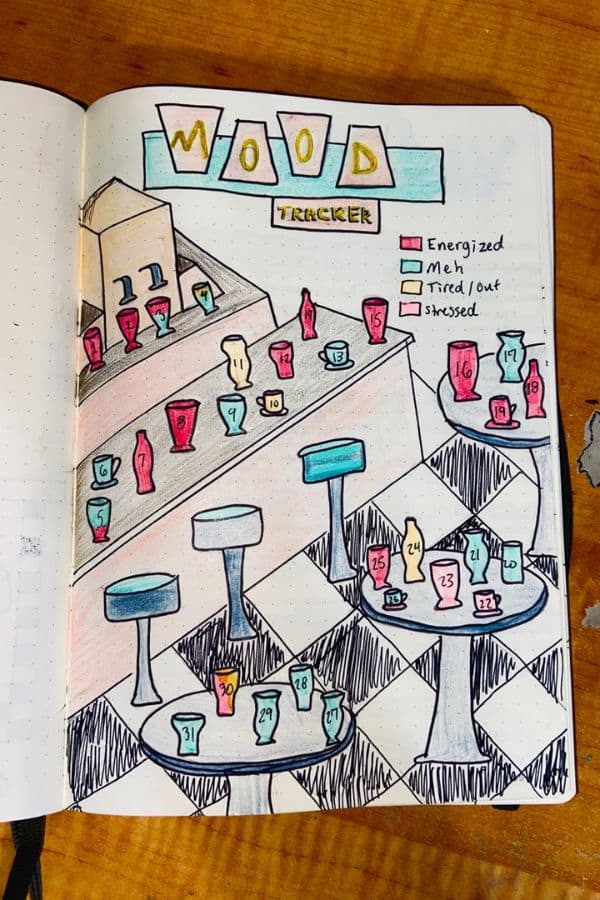 MOOD
TRACKER
Energized
Meh
Tired/out
stressed
1
2
3
4
5
6
7
8
9
10
11
12
13
14
15
16
17
18
19
20
21
22
23
24
25
26
27
28
29
30
31